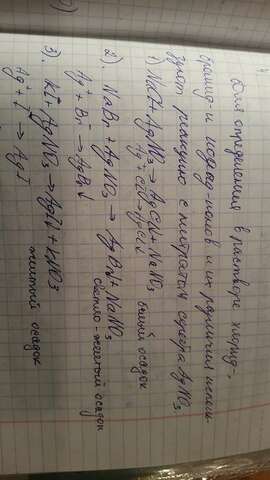 Для определения в растворе хлорид-,
бромид- и иодид-ионов и их различия исполь-
зуют реакцию с нитратом серебра AgNO3
1) NaCl + AgNO3 → AgCl↓ + NaNO3
Ag⁺ + Cl⁻ → AgCl↓ белый осадок
2). NaBr + AgNO3 → AgBr↓ + NaNO3
Ag⁺ + Br⁻ → AgBr↓ светло-желтый осадок
3). KI + AgNO3 → AgI↓ + KNO3
Ag⁺ + I⁻ → AgI↓ желтый осадок